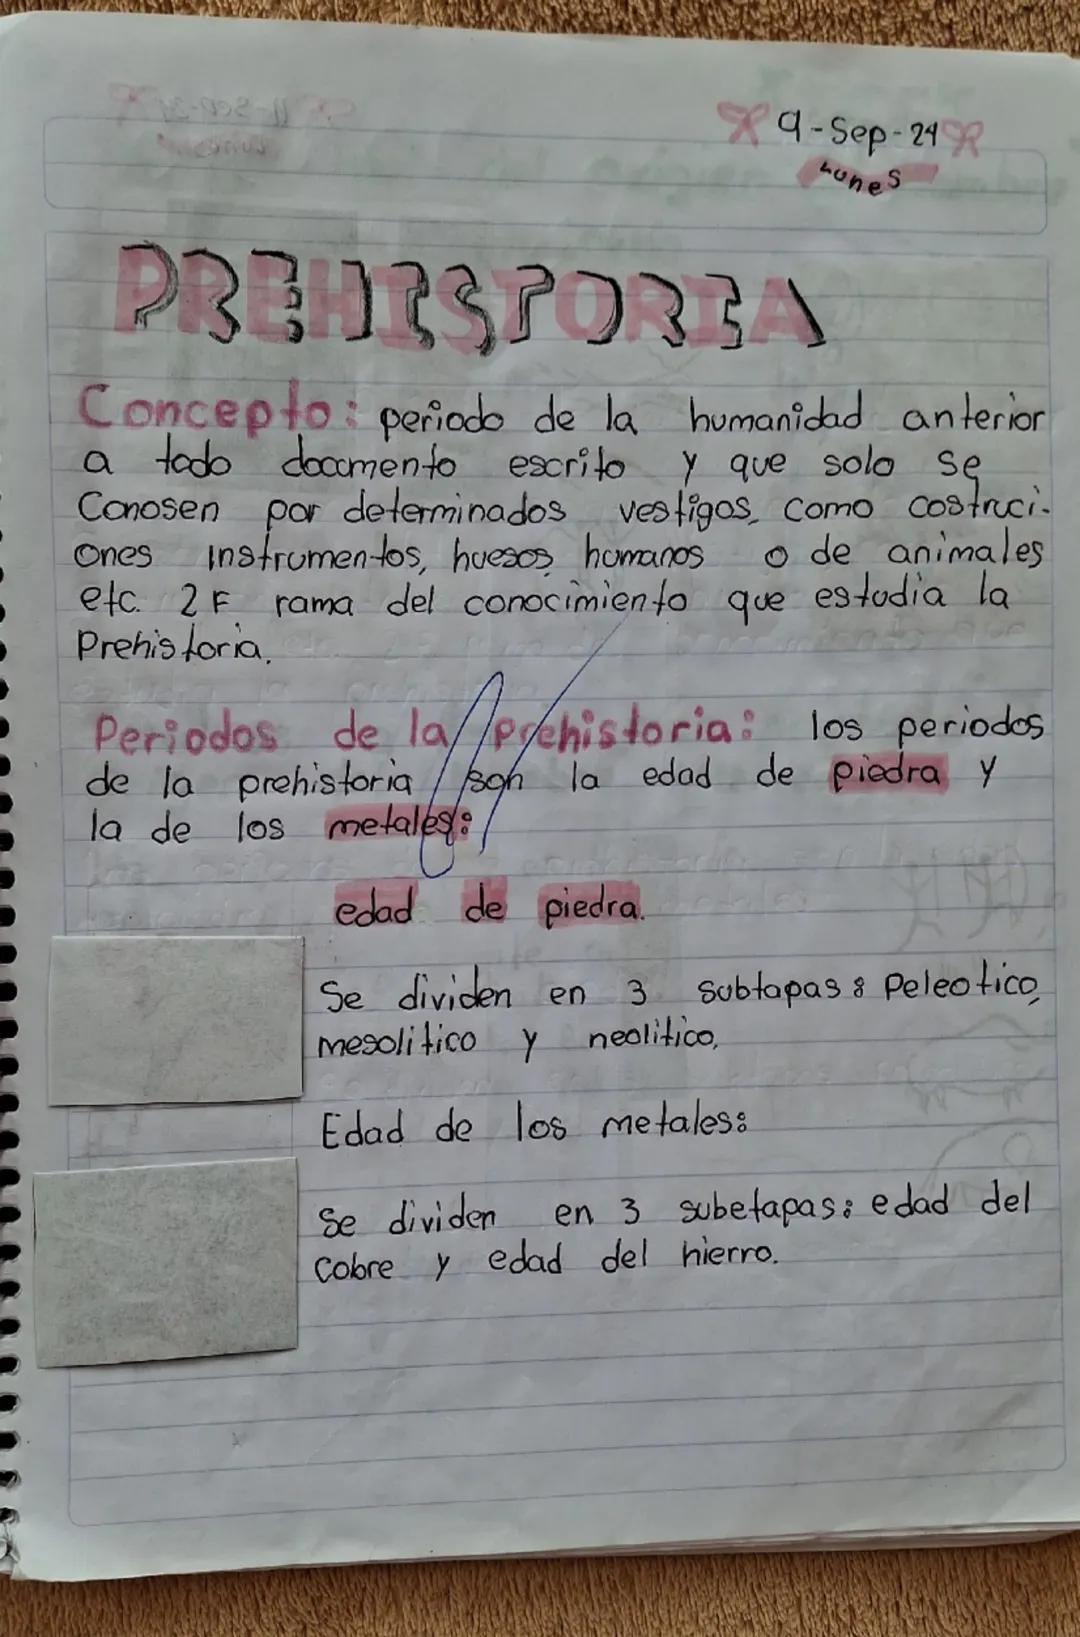 9-Sep-24
Lunes
PREHISTORIA
Concepto: periodo de la humanidad anterior
a todo documento escrito y que solo se
Conosen por determinados vestigos, como costruci-
ones instrumentos, huesos humanos o de animales
etc. 2 F rama del conocimiento que estudia la
Prehistoria.
Periodos de la prehistoria: los periodos
de la prehistoria son la edad de piedra y
la de los metales:
edad de piedra.
Se dividen en 3 subtapas: Peleotico,
mesolitico y neolitico,
Edad de los metales:
Se dividen en 3 subetapas: edad del
Cobre y edad del hierro.